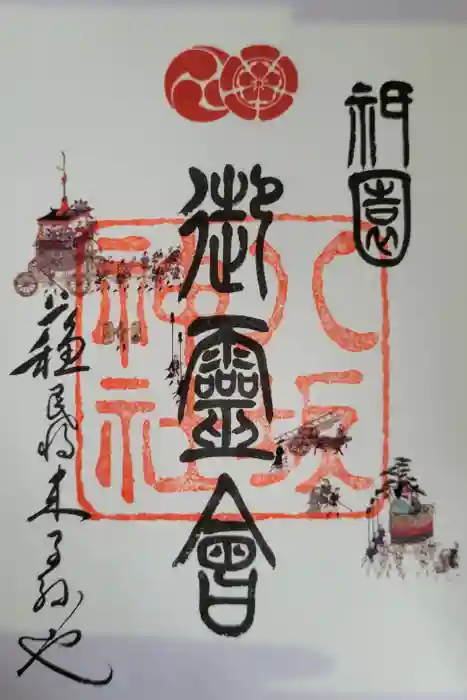 祇園
御靈會
蘇民将来子孫也
八坂神社